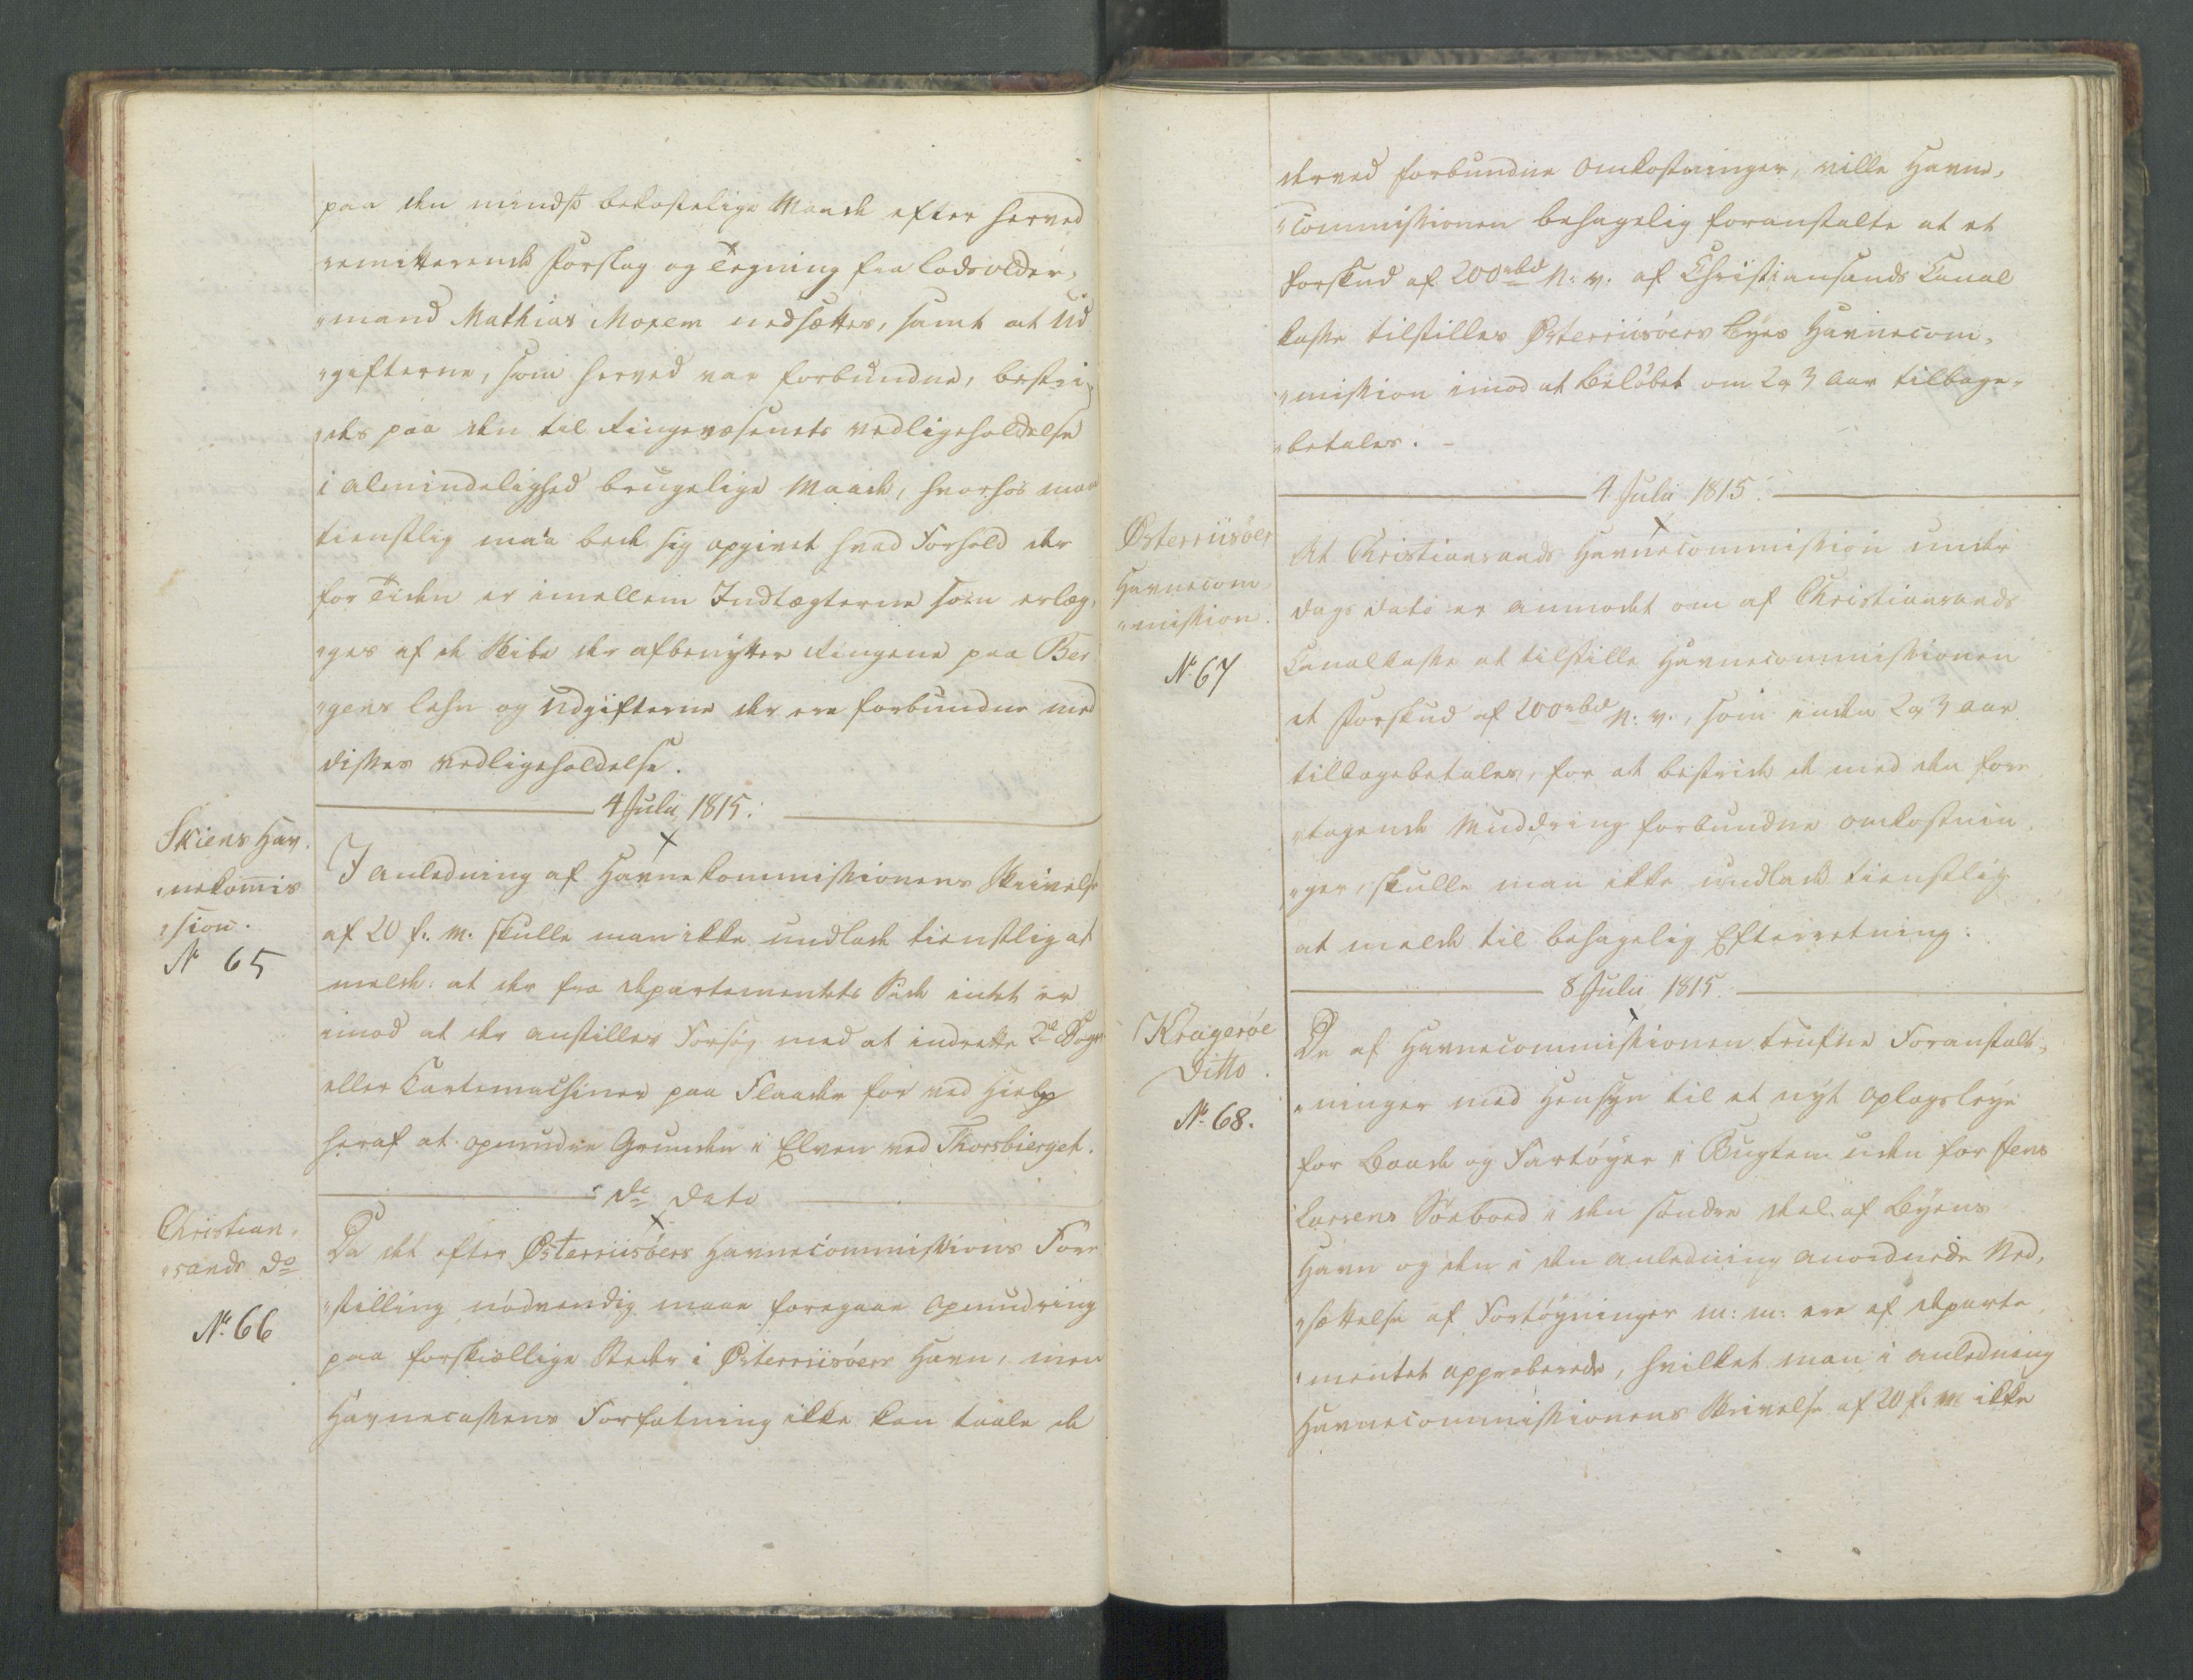 paa den mindst bekostelige Maade efter herved
remitterende Forslag og Tegning fra Lodsolder„
„mand Mathias Moxem nedsættes, samt at Ud
„gifterne, som herved var forbundne, bestri„
„des paa den til Ringevæsenets vedligeholdelse
i Almindelighed brugelige Maade, hvorhos man
tienstlig maa bede sig opgivet hvad Forhold der
for Tiden er imellem Indtægterne som erlæg„
„ges af de Skibe der afbenytter Ringene paa Ber
„gens Lehn og Udgifterne der ere forbundne med
disses vedligeholdelse.
4 Julii 1815.
Skiens Hav„
„nekommis
„sion.
No 65
I Anledning af Havnekommissionens Skrivelse
af 20 f. M. skulle man ikke undlade tienstlig at
melde: at der fra Departementets Side intet er
imod at der anstilles Forsøg med at indrette 2de
eller Kartemachiner paa Flaader for ved Hielp
heraf at opmudre Grunden i Elven ved Thorsbierget.
do Dato
Christian„
„sands do
No. 66
Da det efter Østerriisöers Havnecommissions Fore
„stilling nödvendig maae foregaae Opmudring
paa forskiællige Steder i Østerriisöers Havn, men
Havnecassens Forfatning ikke kan taale de
derved forbundne Omkostninger, ville Havne„
„Commissionen behagelig foranstalte at et
Forskud af 200 rbd N. V. af Christiansands Canal
kasse tilstilles Østerriisöers Byes Havnecom„
„mission imod at Belöbet om 2 a 3 Aar tilbage„
„betales. –
4 Julii 1815.
Østerriisöer
Havnecom„
„mission.
No. 67
At Christiansands Havnecommission under
Dags Dato er anmodet om af Christiansands
Canalkasse at tilstille Havnecommissionen
et Forskud af 200 rbd N. V., som inden 2 a 3 Aar
tilbagebetales, for at bestride de med den fore
„tagende Muddring forbundne Omkostnin
„ger, skulle man ikke undlade tienstlig
at melde til behagelig Efterretning.
8 Julii 1815.
Kragerøe
Ditto.
No. 68.
De af Havnecommissionen trufne Foranstalt„
„ninger med Hensyn til et nyt Oplagsleye
for Baade og Fartöyer i Bugten uden for Jens
Larsens Söeboed i den söndre Deel af Byens
Havn og den i den Anledning anordnede Ned„
„sættelse af Fortöyninger m: m: ere af Departe„
„mentet approberede, hvilket man i Anledning
Havnecommissionens Skrivelse af 20 f. M. ikke